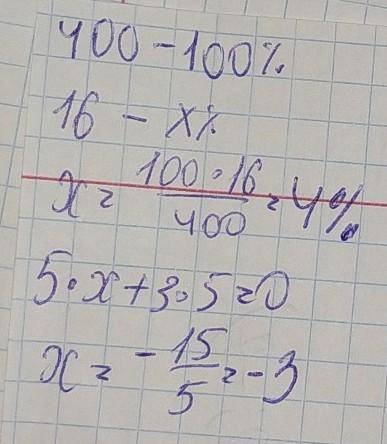 400 - 100%
16 - x%
x = 100·16/400 = 4%
5·x+3·5=0
x = -15/5 = -3